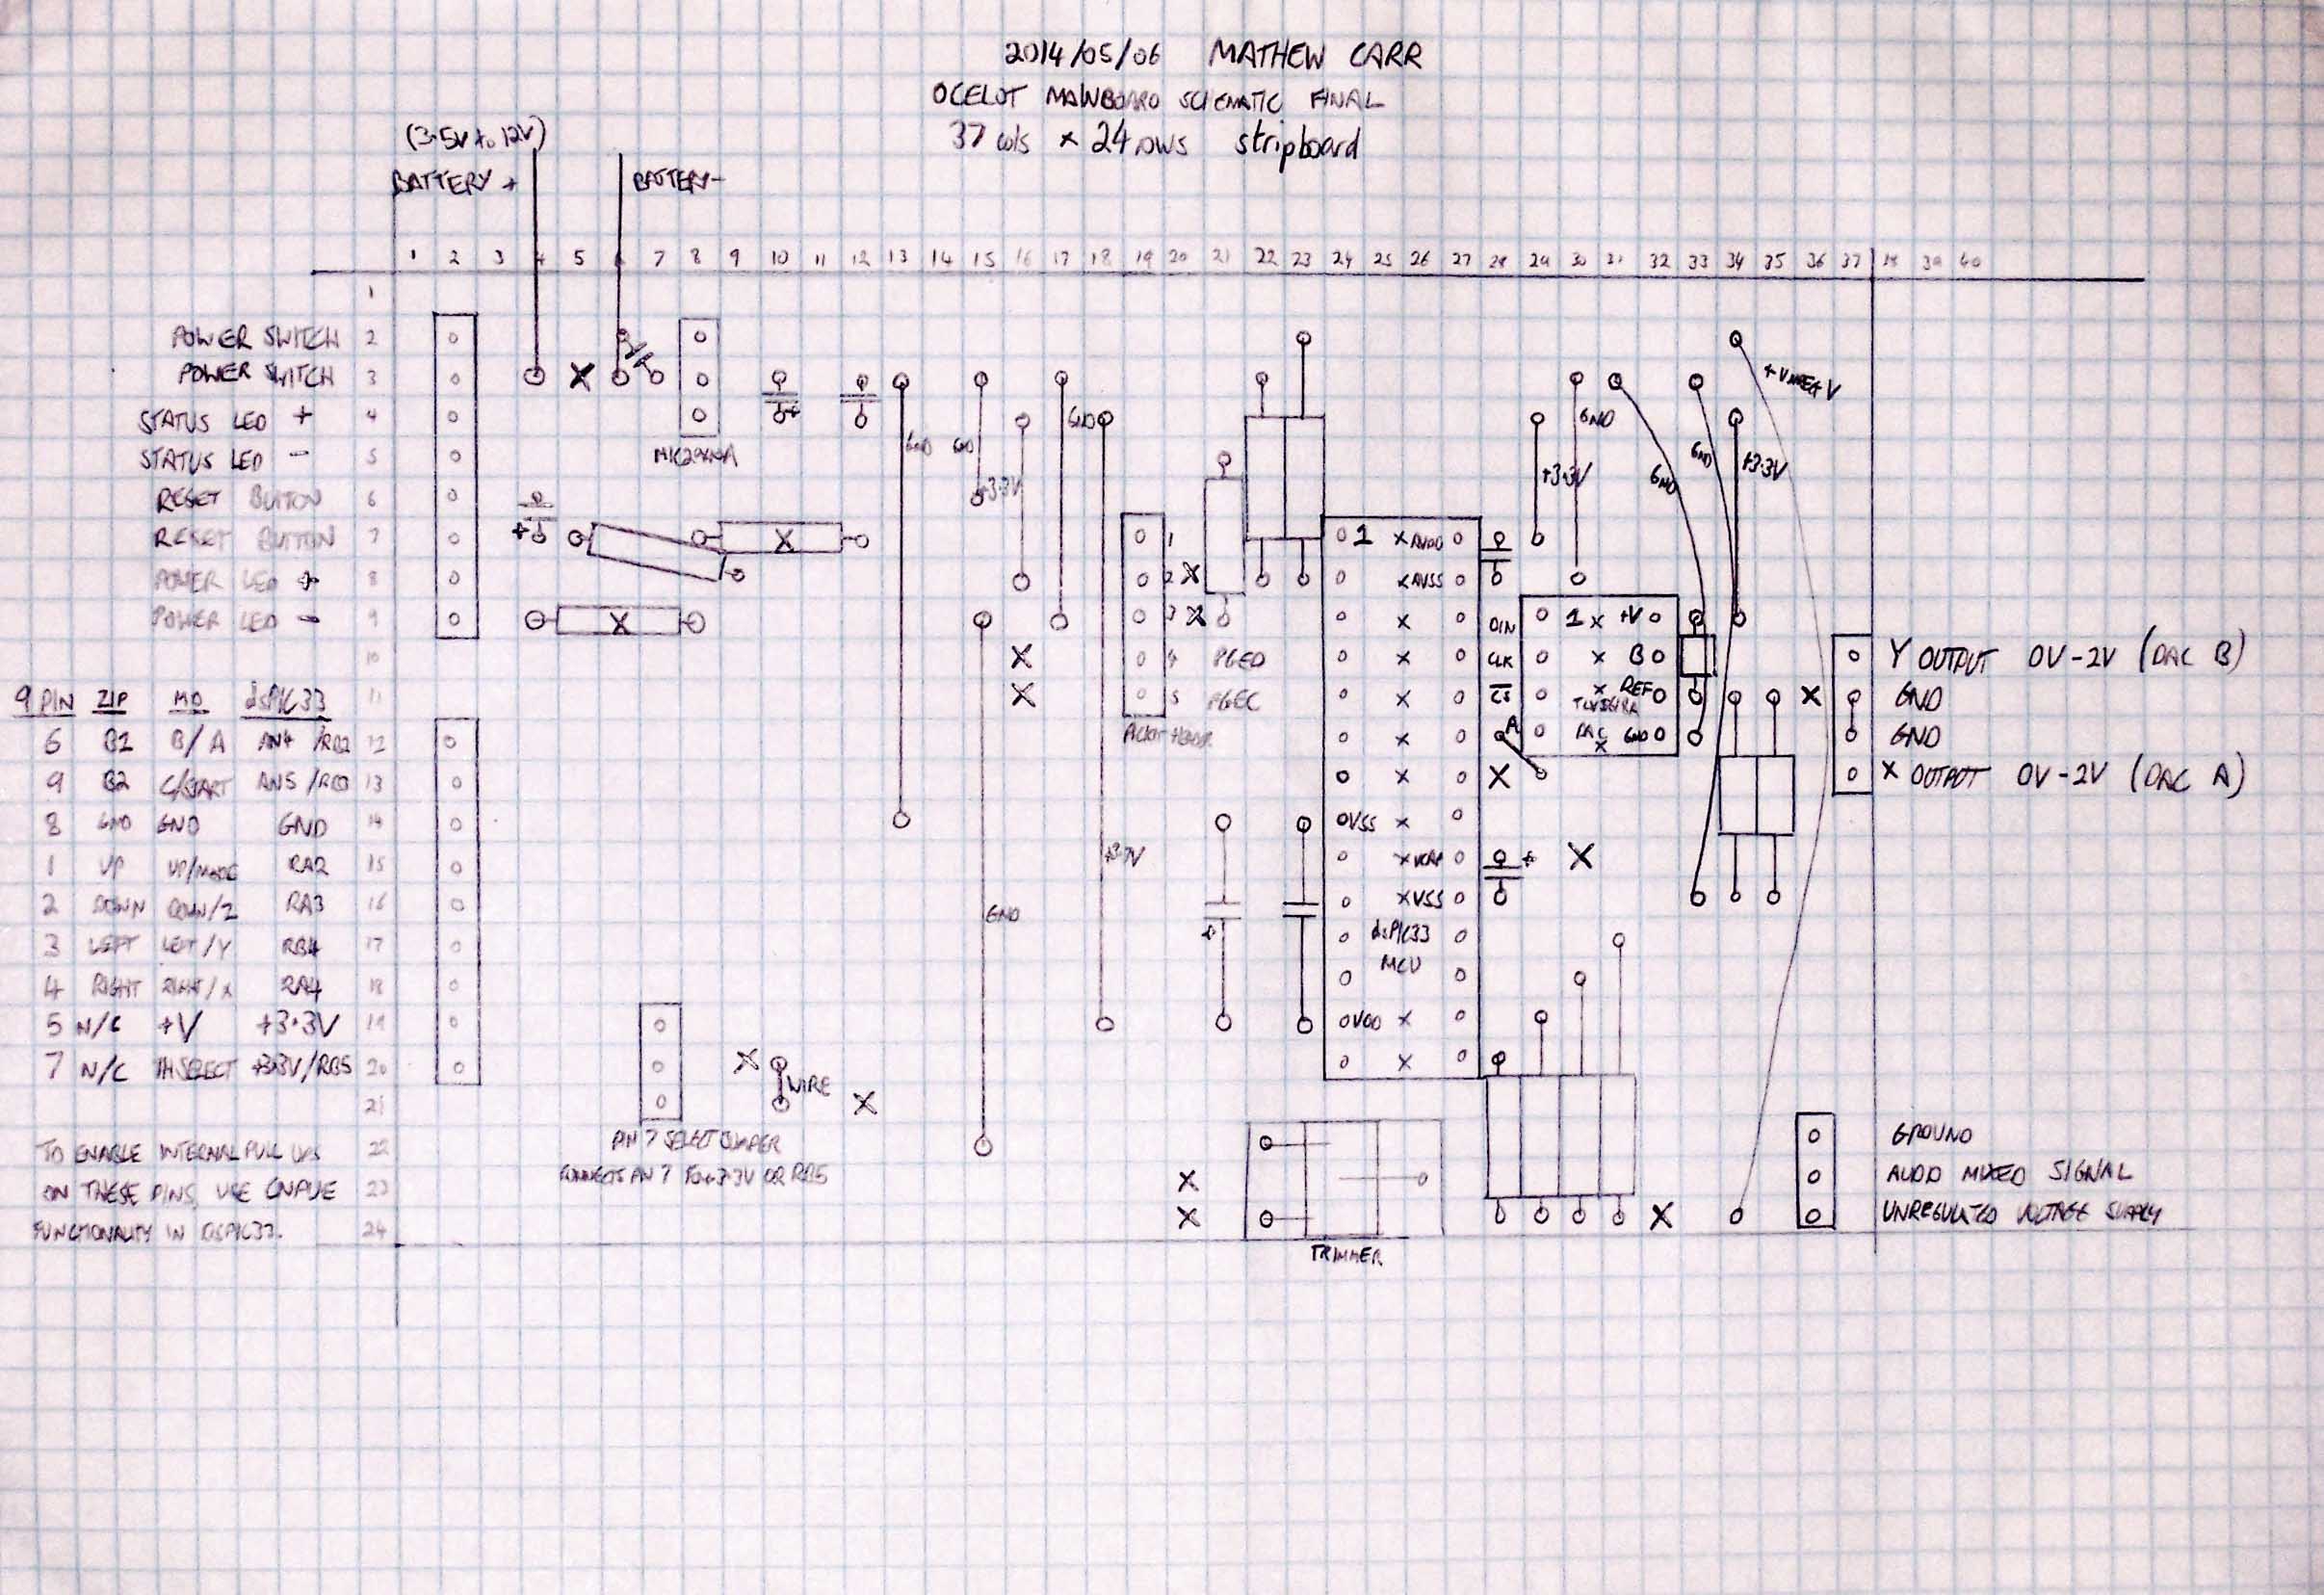 2014/05/06 MATHEW CARR
OCELOT MAINBOARD SCHEMATIC FINAL
37 cols x 24 rows stripboard
(3.5V to 12V)
BATTERY + BATTERY-
1 2 3 4 5 6 7 8 9 10 11 12 13 14 15 16 17 18 19 20 21 22 23 24 25 26 27 28 29 30 31 32 33 34 35 36 37 38 39 40
1
POWER SWITCH 2
POWER SWITCH 3
STATUS LED + 4
STATUS LED - 5
RESET BUTTON 6
RESET BUTTON 7
POWER LED + 8
POWER LED - 9
10
9 PIN ZIP MD dsPIC33 11
6 B1 B/A AN4 /RB2 12
9 B2 C/START AN5 /RB3 13
8 GND GND GND 14
1 UP UP/MODE RA2 15
2 DOWN DOWN/Z RA3 16
3 LEFT LEFT/Y RB4 17
4 RIGHT RIGHT/X RA4 18
5 N/C +V +3.3V 19
7 N/C TH SELECT +3.3V/RB5 20
21
TO ENABLE INTERNAL PULL UPS 22
ON THESE PINS, USE CNPUE 23
FUNCTIONALITY IN DSPIC33. 24
+
GND
GND
+3.3V
GND
+3.3V
GND
GND
GND
+3.3V
+
1
2
3
4 PGED
5 PGEC
1 AVDD
AVSS
VSS
VCAP
VSS
dsPIC33
MCU
VDD
DIN
CLK
CS
A
1 +V
B
REF
DAC GND
+
+
GND
WIRE
PIN 7 SELECT JUMPER
CONNECTS PIN 7 TO +3.3V OR RB5
TRIMMER
Y OUTPUT 0V-2V (DAC B)
GND
GND
X OUTPUT 0V-2V (DAC A)
GROUND
AUDIO MIXED SIGNAL
UNREGULATED VOLTAGE SUPPLY